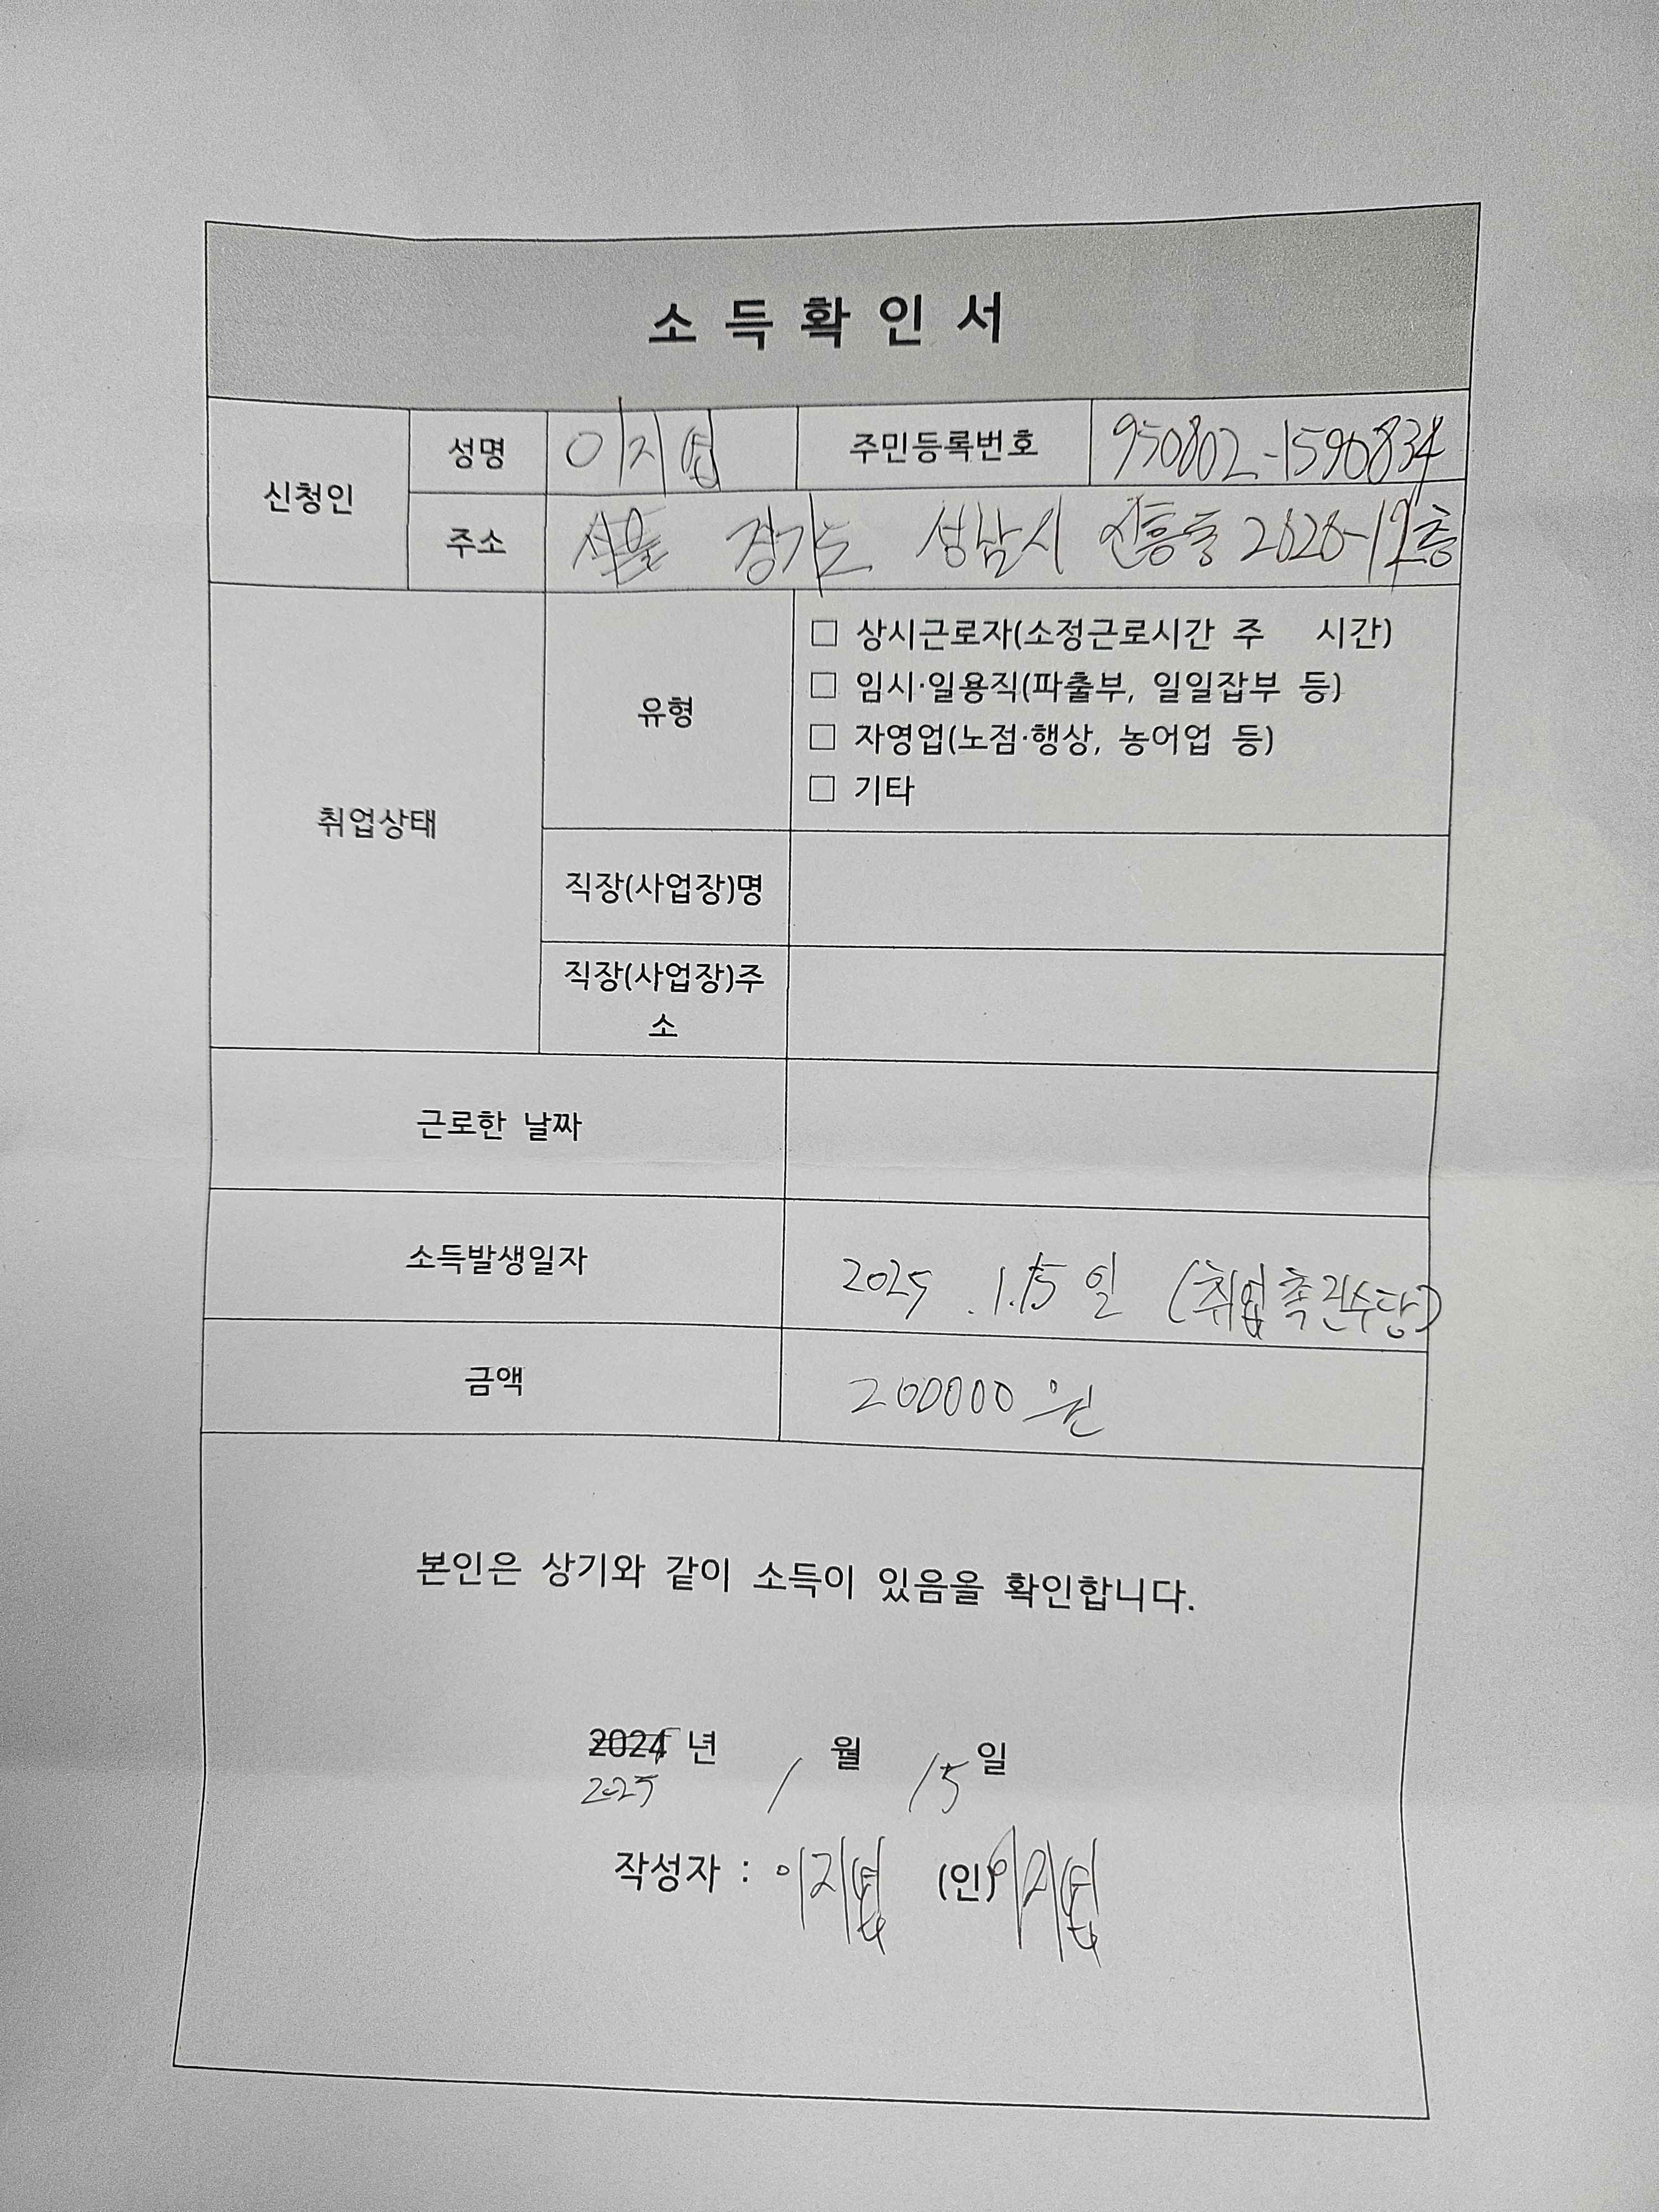 소 득 확 인 서
신청인
성명 이지섭 주민등록번호 950802-1590834
주소 경기도 성남시 신흥동
취업상태
유형
□ 상시근로자(소정근로시간 주 시간)
□ 임시·일용직(파출부, 일일잡부 등)
□ 자영업(노점·행상, 농어업 등)
□ 기타
직장(사업장)명
직장(사업장)주
소
근로한 날짜
소득발생일자 2025 . 1.15 일 (취업촉진수당)
금액 200000 원
본인은 상기와 같이 소득이 있음을 확인합니다.
2024 년 1 월 15 일
2025
작성자 : 이지섭 (인) 이지섭